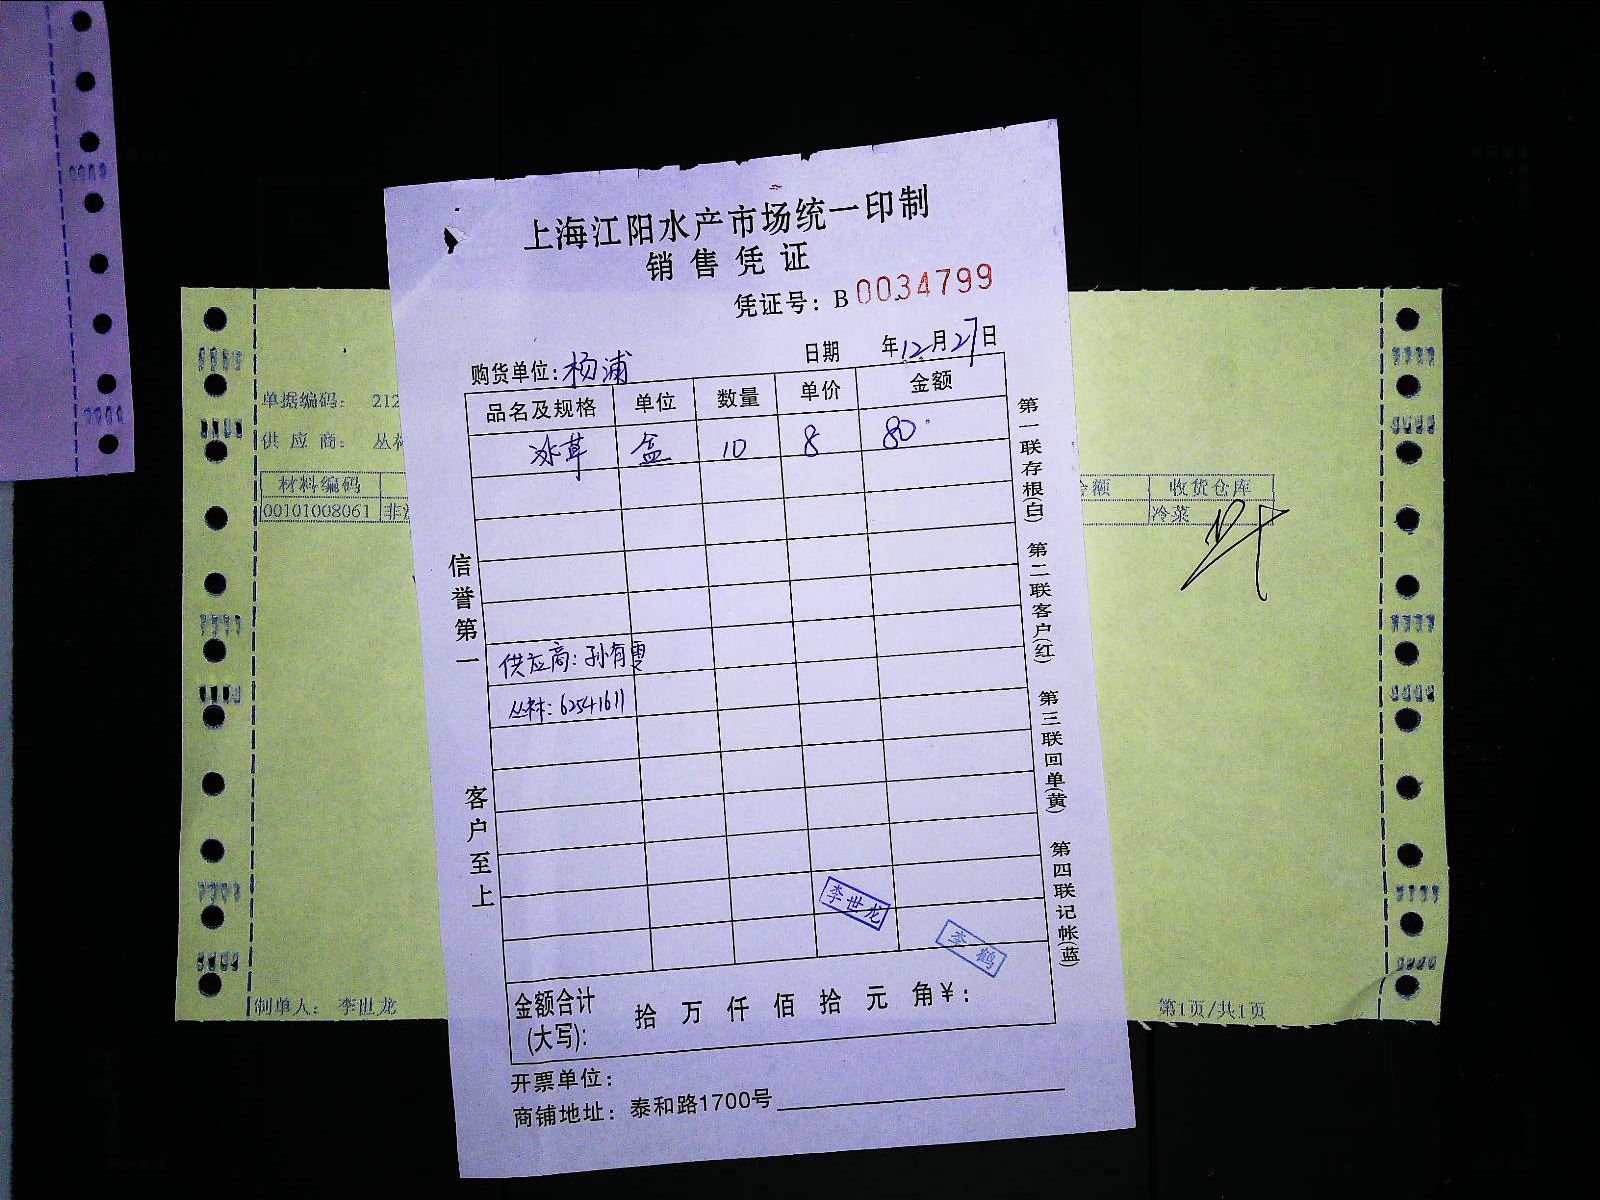 上海江阳水产市场统一印制
销售凭证
凭证号：B 0034799
日期 年12月27日
购货单位：杨浦
品名及规格 单位 数量 单价 金额
冰草 盒 10 8 80
供应商：孙有雯
丛林：62541611
信誉第一
客户至上
第一联存根(白) 第二联客户(红) 第三联回单(黄) 第四联记帐(蓝)
李世龙
李鹤
金额合计(大写)： 拾 万 仟 佰 拾 元 角 ¥：
开票单位：
商铺地址：泰和路1700号
单据编码： 212
供应商： 丛
材料编码
00101008061 非
额 收货仓库
冷菜
制单人： 李世龙
第1页/共1页